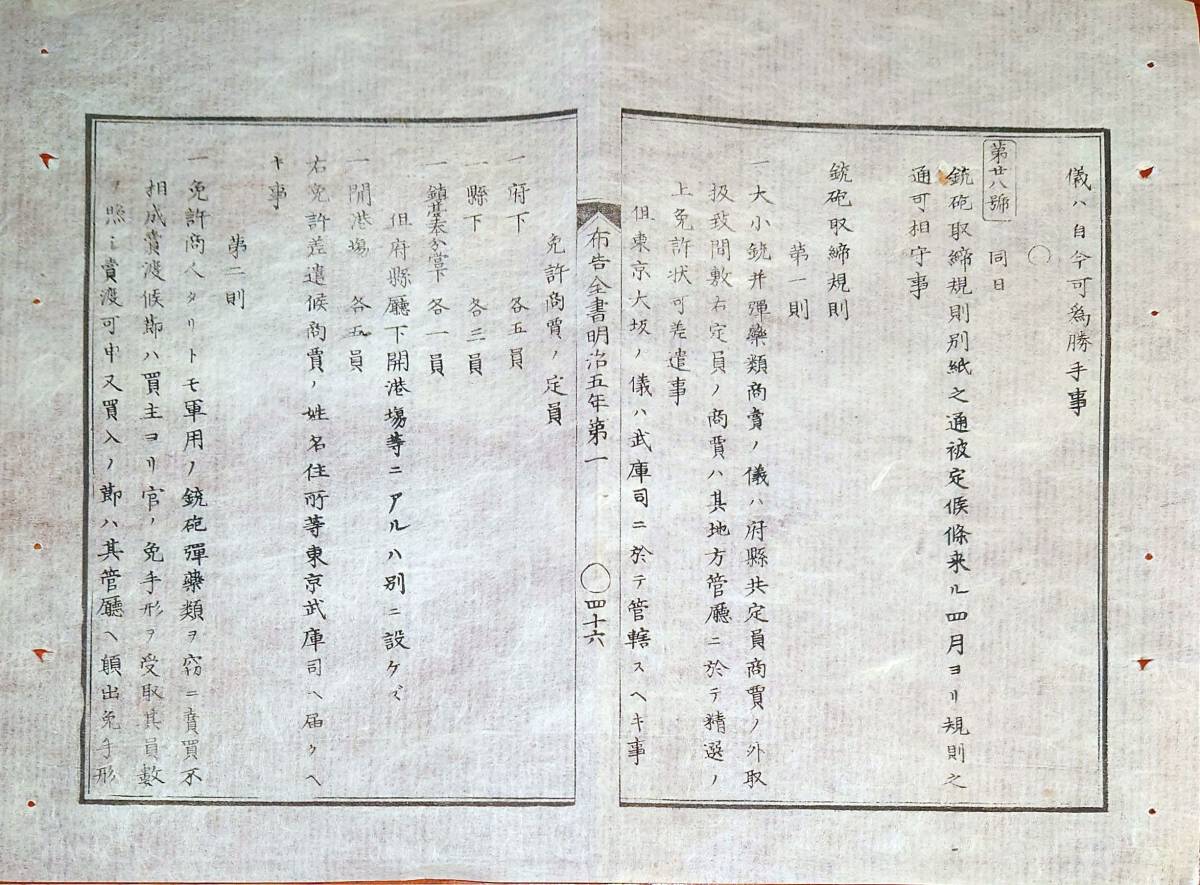 儀ハ自今可爲勝手事
〇
第廿八號 同日
銃砲取締規則別紙之通被定候條来ル四月ヨリ規則之
通可相守事
銃砲取締規則
第一則
一大小銃并彈藥類商賣ノ儀ハ府縣共定員商賈ノ外取
扱致間敷右定員ノ商賈ハ其地方管廳ニ於テ精選ノ
上免許状可差遣事
但東京大坂ノ儀ハ武庫司ニ於テ管轄スヘキ事
布告全書明治五年第一 〇四十六
免許商賈ノ定員
一府下 各五員
一縣下 各三員
一鎭臺本分營下 各一員
但府縣廳下開港場等ニアルハ別ニ設ケズ
一開港場 各五員
右免許差遣候商賈ノ姓名住所等東京武庫司ヘ届クヘ
キ事
第二則
一免許商人タリトモ軍用ノ銃砲彈藥類ヲ窃ニ賣買不
相成賣渡候節ハ買主ヨリ官ノ免手形ヲ受取其員數
ノ照シ賣渡可申又買入ノ節ハ其管廳ヘ願出免手形